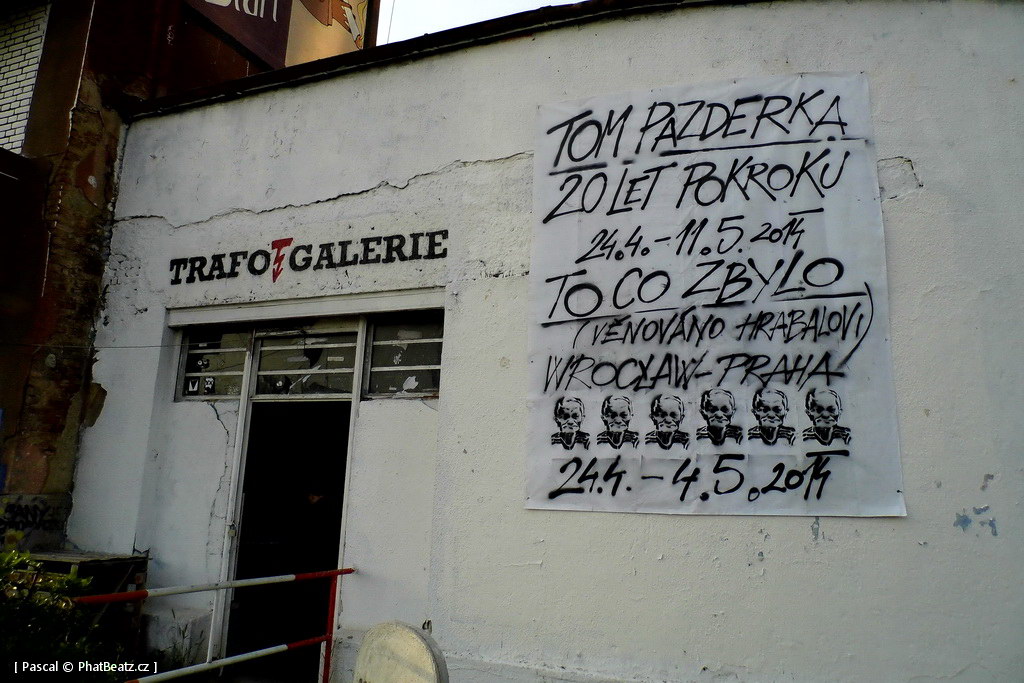 TRAFO GALERIE
TOM PAZDERKA
20 LET POKROKU
24.4. – 11.5. 2014
TO CO ZBYLO
(VĚNOVÁNO HRABALOVI)
WROCŁAW – PRAHA
24.4. – 4.5. 2014
[ Pascal © PhatBeatz.cz ]